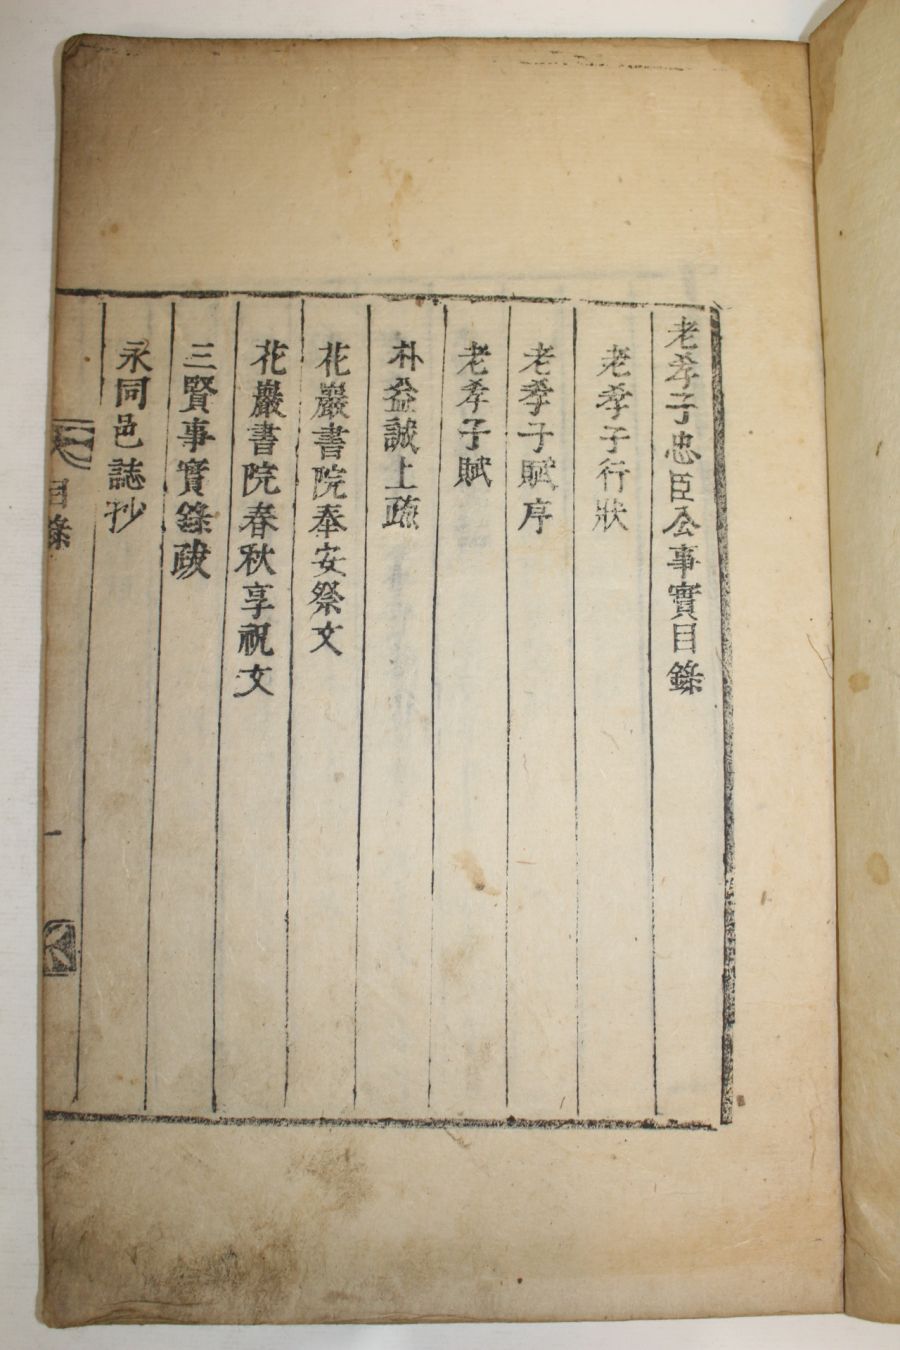 老孝子忠臣公事實目錄
老孝子行狀
老孝子賦序
老孝子賦
朴益誠上疏
花巖書院奉安祭文
花巖書院春秋享祝文
三賢事實錄跋
永同邑誌抄
目錄
一